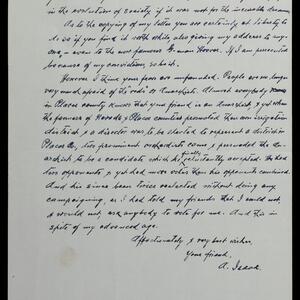 in the evolution of society if it was not for the incurable dreamers.
As to the copying of my letter you are certainly at liberty to
do so if you find it worth while also giving my address to any-
one, - even to the now famous G-man Hoover. If I am persecuted
because of my convictions, so be it.
However I think your fears are unfounded. People are no longer
very much afraid of the "reds" or Anarchists. Almost everybody
in Placer county knows that your friend is an Anarchist & yet when
the farmers of Nevada & Placer counties promoted their own irrigation
district & a director was to be elected to represent a district in
Placer Co, two prominent orchardists came & persuaded the An-
archist to be a candidate which he finally reluctantly accepted. He had
two opponents & yet had more votes than his opponents combined.
And he has since been twice reelected without doing any
campaigning, as I had told my friends that I could not,
& would not, ask anybody to vote for me. And this in
spite of my advanced age.
Affectionately & very best wishes,
Your friend,
A. Isaak